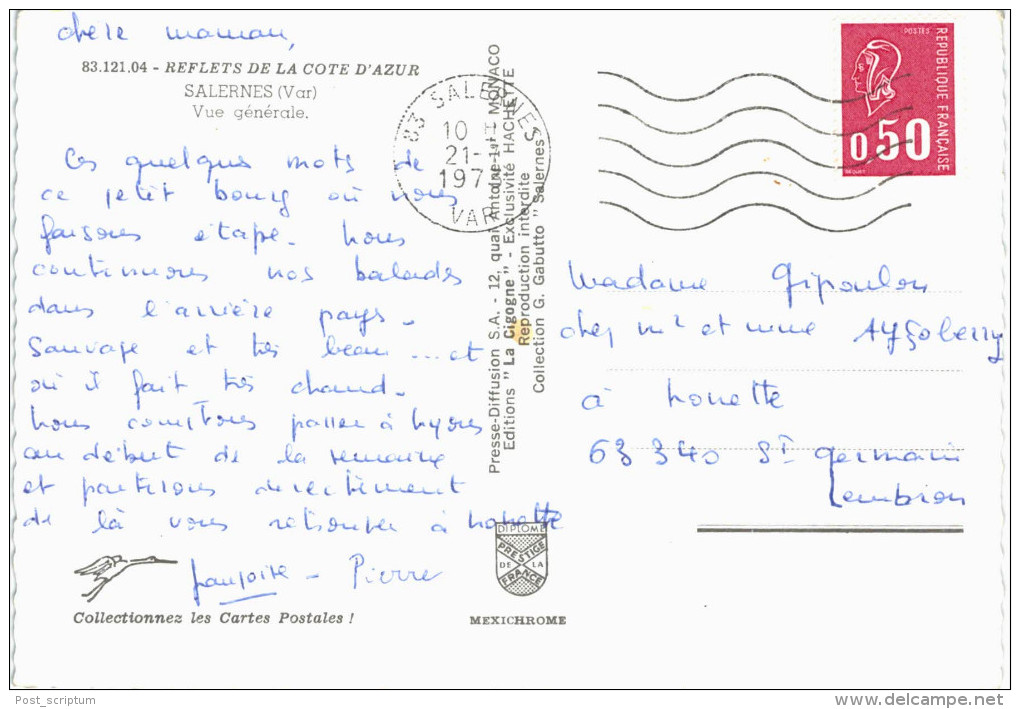 chère maman,
83.121.04 - REFLETS DE LA COTE D'AZUR
SALERNES (Var)
Vue générale.
Ces quelques mots de
ce petit bourg où nous
faisons étape. Nous
continuons nos balades
dans l'arrière pays.
Sauvage et très beau ... et
où il fait très chaud.
Nous comptons passer à Hyères
au début de la semaine
et partirons directement
de là vous retrouver à Nonette
Françoise - Pierre
Collectionnez les Cartes Postales !
83 SALERNES
10 H
21-
197
VAR
Presse-Diffusion S.A. - 12, quai Antoine-1er MONACO
Editions "La Cigogne" - Exclusivité HACHETTE
Reproduction interdite
Collection G. Gabutto "Salernes"
DIPLOME
PRESTIGE
DE LA
FRANCE
MEXICHROME
POSTES
REPUBLIQUE FRANÇAISE
0,50
Madame Gipoulon
chez Mr et Mme Aysoberry
à Nonette
63 340 St Germain
Lembron
Post_scriptum
delcampe.net